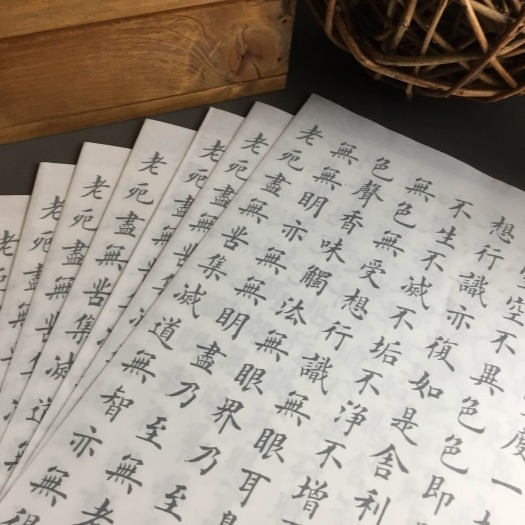 度一
空不異色色即
想行識亦復如是舍利
不生不滅不垢不淨不增
無色無受想行識無眼耳
色聲香味觸法無眼界乃至
無無明亦無無明盡乃至無老
老死盡無苦集滅道無智亦無得
老死盡無苦集
老死盡無苦
老死盡無苦集
老死盡無苦集滅道
老死盡無苦
老死盡無